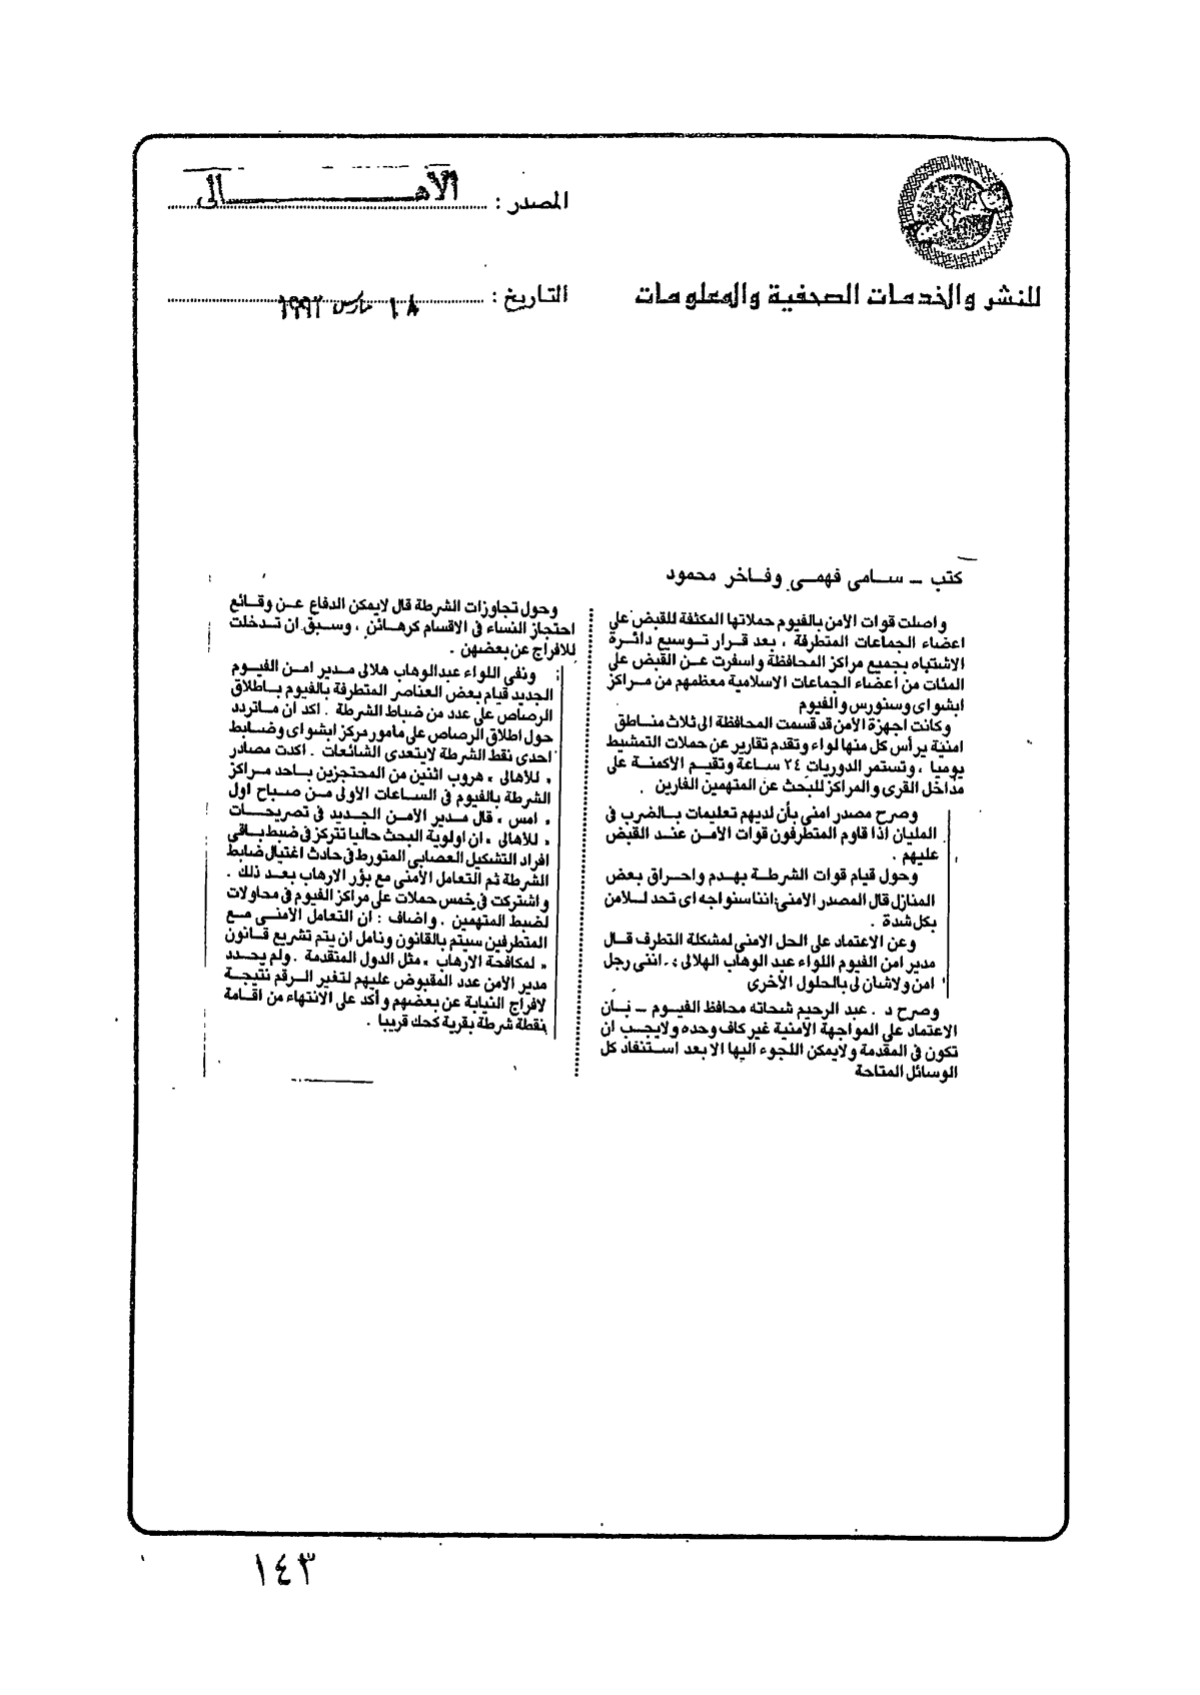 المصدر : الأهـــــالى
للنشر والخدمات الصحفية والمعلومات
التاريخ : ١٨ مارس ١٩٩٢
كتب ــ سـامى فهمـى وفـاخر محمود
واصلت قوات الأمن بالفيوم حملاتها المكثفة للقبض على
اعضاء الجماعات المتطرفة ، بعد قـرار تـوسيع دائـرة
الاشتباه بجميع مراكز المحافظة واسفرت عـن القبض على
المئات من اعضاء الجماعات الاسلامية معظمهم من مـراكز
ابشواى وسنورس والفيوم
وكانت اجهزة الأمن قد قسمت المحافظة الى ثلاث منـاطق
امنية يرأس كل منها لواء وتقدم تقارير عن حملات التمشيط
يوميا ، وتستمر الدوريات ٢٤ سـاعة وتقيم الأكمنة على
مداخل القرى والمراكز للبحث عن المتهمين الفارين .
وصرح مصدر امنى بأن لديهم تعليمات بـالضرب فى
المليان اذا قاوم المتطرفون قوات الأمـن عنـد القبض
عليهم .
وحول قيام قوات الشرطـة بهـدم واحـراق بعض
المنازل قال المصدر الامنى: اننا سنواجه اى تحد لـلامن
بكل شدة .
وعن الاعتماد على الحل الامنى لمشكلة التطرف قـال
مدير امن الفيوم اللواء عبد الوهاب الهلالى : . اننى رجل
امن ولاشان لى بالحلول الأخرى
وصرح د . عبد الرحيم شحاته محافظ الفيـوم ــ بـان
الاعتماد على المواجهة الأمنية غير كاف وحده ولايجـب ان
تكون فى المقدمة ولايمكن اللجوء اليها الا بعد اسـتنفاد كل
الوسائل المتاحة
وحول تجاوزات الشرطة قال لايمكن الدفاع عـن وقـائع
احتجاز النساء فى الاقسام كرهـائن ، وسبق ان تـدخلت
للافراج عن بعضهن .
ونفى اللواء عبدالوهاب هلالى مـدير امـن الفيـوم
الجديد قيام بعض العناصر المتطرفة بالفيوم بـاطلاق
الرصاص على عدد من ضباط الشرطة . اكد ان مـاتردد
حول اطلاق الرصاص على مامور مركز ابشواى وضـابط
احدى نقط الشرطة لايتعدى الشائعات . اكدت مصادر
« للأهالى » هروب اثنين من المحتجزين بـاحد مـراكز
الشرطة بالفيوم فى الساعات الأولى مـن صبـاح اول
« امس » قال مـدير الامـن الجديـد فى تصريحـات
« للأهالى » ان اولوية البحث حاليا تتركز فى ضبط بـاقى
افراد التشكيل العصابى المتورط فى حادث اغتيال ضابط
الشرطة ثم التعامل الأمنى مع بؤر الارهاب بعـد ذلك .
واشتركت فى خمس حملات على مراكز الفيوم فى محاولات
لضبط المتهمين . واضاف : ان التعامل الامنـى مـع
المتطرفين سيتم بالقانون ونامل ان يتم تشريع قـانون
« لمكافحة الارهاب » مثل الدول المتقدمة . ولم يحـدد
مدير الأمن عدد المقبوض عليهم لتغير الـرقم نتيجـة
لافراج النيابة عن بعضهم وأكد على الانتهاء من اقـامة
نقطة شرطة بقرية كحك قريبا .
١٤٣